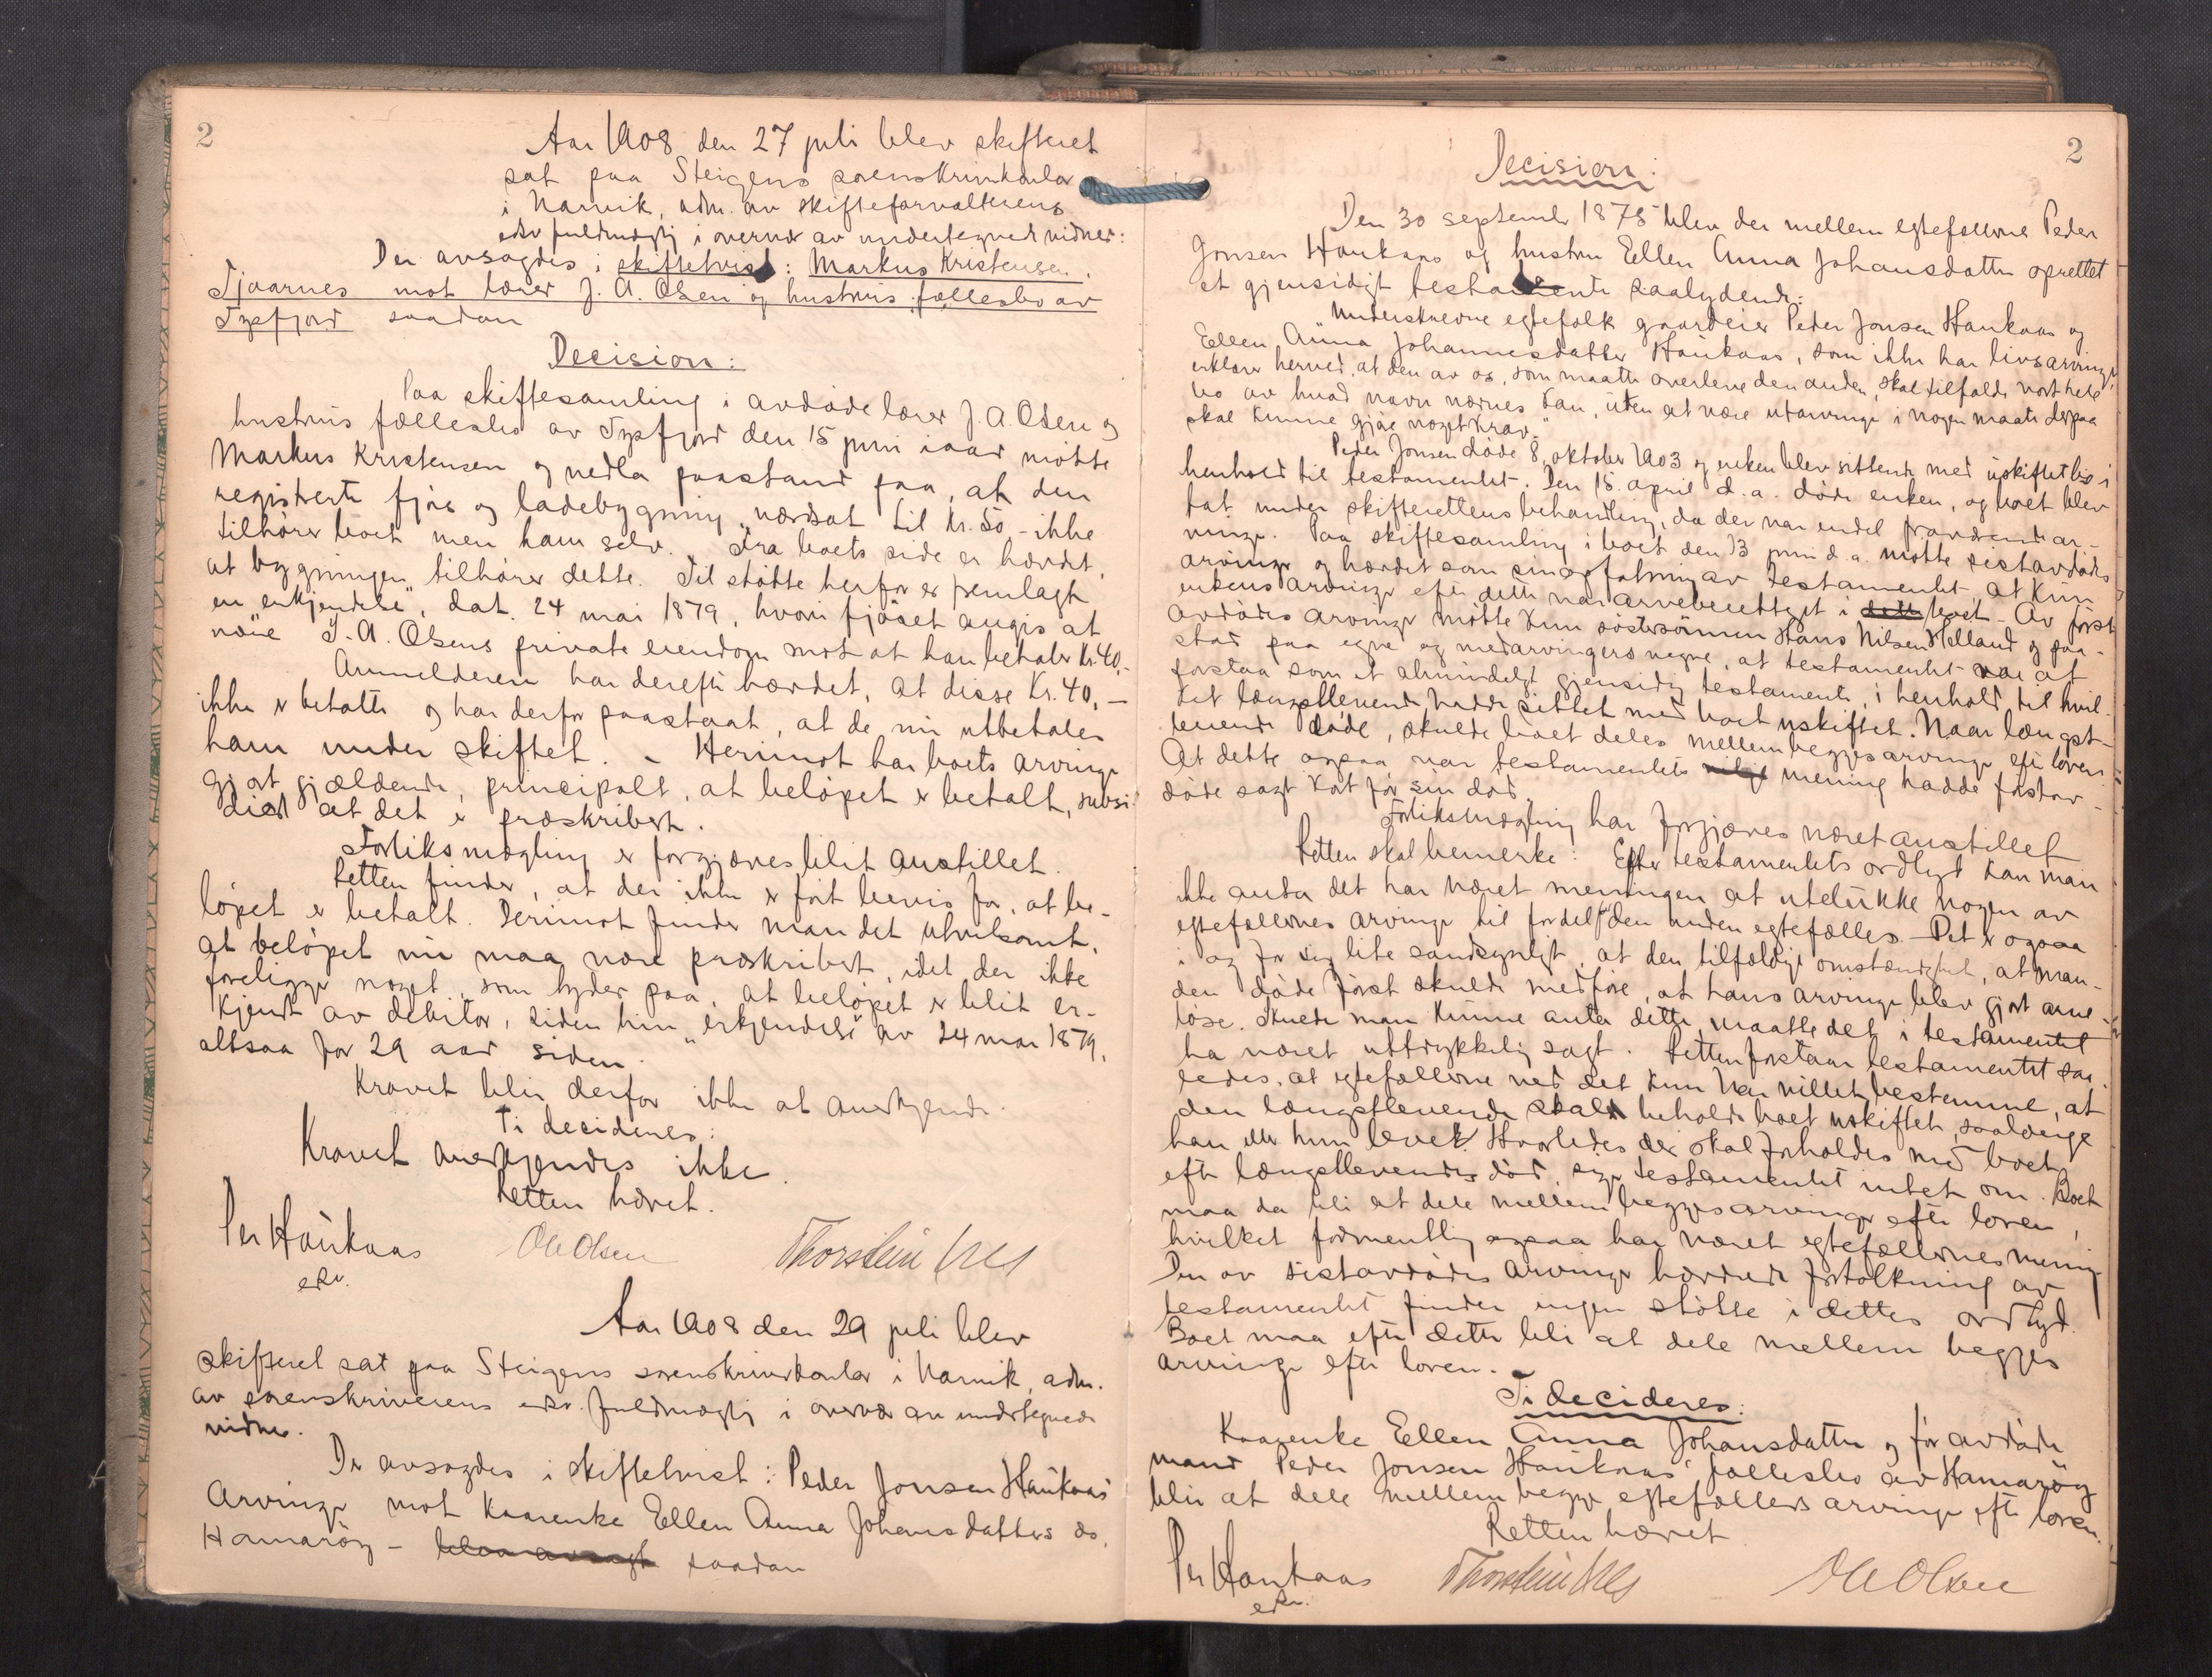 2
Aar 1908 den 27 juli blev skifteret
sat paa Steigens sorenskriverkontor
i Narvik, adm. av skifteforvalterens
edsv fuldmægtig i overvær av undertegnede vidner:
Der avsagdes i skiftetvist: Markus Kristensen,
Tjaarnes mot lærer J. A. Olsen og hustrus fællesbo av
Tysfjord saadan
Decision:
Paa skiftesamling i avdøde lærer J. A. Olsen og
hustrus fællesbo av Tysfjord den 15 juni iaar møtte
Markus Kristensen og nedla paastand paa, at den
registrerte fjøs og ladebygning, værdsat til kr. 50 - ikke
tilhører boet men ham selv. Fra boets side er hævdet,
at bygningen tilhører dette. Til støtte herfor er fremlagt
en "erkjendelse", dat. 24 mai 1879, hvori fjøset angis at
være J. A. Olsens private eiendom mot at han betaler kr. 40,-
Anmelderen har derefter hævdet, at disse kr. 40,-
ikke er betalte og har derfor paastaat, at de nu utbetales
ham under skiftet. - Herimot har boets arvinger
gjort gjældende, principalt, at beløpet er betalt, subsi-
diært at det er præskribert.
Forliksmægling er forgjæves blit anstillet.
Retten finder, at der ikke er ført bevis for, at be-
løpet er betalt. Derimot finder man det utvilsomt,
at beløpet nu maa være præskribert, idet der ikke
foreligger noget, som tyder paa, at beløpet er blit er-
kjendt av debitor, siden hin "erkjendelse" av 24 mai 1879,
altsaa for 29 aar siden.
Kravet blir derfor ikke at anerkjende.
Ti decideres:
Kravet anerkjendes ikke.
Retten hævet.
Per Haukaas Ole Olsen Thorstein
edsv.
Aar 1908 den 29 juli blev
skifteret sat paa Steigens sorenskriverkontor i Narvik, adm.
av sorenskriverens edsv. fuldmægtig i overvær av undertegnede
vidner.
Der avsagdes i skiftetvist: Peder Jonsen Haukaas'
arvinger mot kaarenke Ellen Anna Johansdatters do,
Hamarøy - blev avsagt saadan
2
Decision:
Den 30 september 1875 blev der mellem egtefællerne Peder
Jonsen Haukaas og hustru Ellen Anna Johansdatter oprettet
et gjensidigt testamente saalydende:
"Underskrevne egtefolk gaardeier Peder Jonsen Haukaas og
Ellen Anna Johannesdatter Haukaas, som ikke har livsarvinger,
erklærer herved, at den av os, som maatte overleve den anden, skal tilfalde vort hele
bo av hvad navn nævnes kan, uten at være utarvinger i nogen maate derpaa
skal kunne gjøre noget krav."
Peder Jonsen døde 8. oktober 1903 og enken blev sittende med uskiftet bo i
henhold til testamentet. Den 15. april d.a. døde enken, og boet blev
tat under skifterettens behandling, da der var endel fraværende ar-
vinger. Paa skiftesamling i boet den 13 juni d.a. møtte sistavdødes
arvinger og hævdet som sin opfatning av testamentet, at kun
enkens arvinger efter dette var arveberettiget i dette boet. - Av først
avdødes arvinger møtte kun søstersønnen Hans Nilsen Helland og paa-
stod paa egne og medarvingers vegne, at testamentet var at
forstaa som et almindeligt gjensidig testamente, i henhold til hvil-
ket længstlevende hadde sittet med boet uskiftet. Naar længst-
levende døde, skulde boet deles mellem begges arvinger efter loven
At dette ogsaa var testamentets mening hadde førstav-
døde sagt kort før sin død.
Forliksmægling har forgjæves været anstillet
Retten skal bemerke: Efter testamentets ordlyd kan man
ikke anta det har været meningen at utelukke nogen av
egtefællernes arvinger til fordel for den anden egtefælles. - Det er ogsaa
i og for sig lite sandsynligt, at den tilfældige omstændighet, at man-
den døde først skulde medføre, at hans arvinger blev gjort arve-
løse. Skulde man kunne anta dette, maatte det i testamentet
ha været uttrykkelig sagt. Retten forstaar testamentet saa-
ledes, at egtefællerne ved det kun har villet bestemme, at
den længstlevende skal beholde boet uskiftet, saalænge
han eller hun lever. Hvorledes der skal forholdes med boet
efter længstlevendes død, siger testamentet intet om. Boet
maa da bli at dele mellem begges arvinger efter loven,
hvilket formentlig ogsaa har været egtefællernes mening
Den av sistavdødes arvinger hævdede fortolkning av
testamentet finder ingen støtte i dettes ordlyd.
Boet maa efter dette bli at dele mellem begges
arvinger efter loven. -
Ti decideres:
Kaarenke Ellen Anna Johansdatter og før avdøde
mand Peder Jonsen Haukaas' fællesbo av Hamarøy
blir at dele mellem begge egtefællers arvinger efter loven.
Retten hævet
Per Haukaas Thorstein Ole Olsen
edsv.